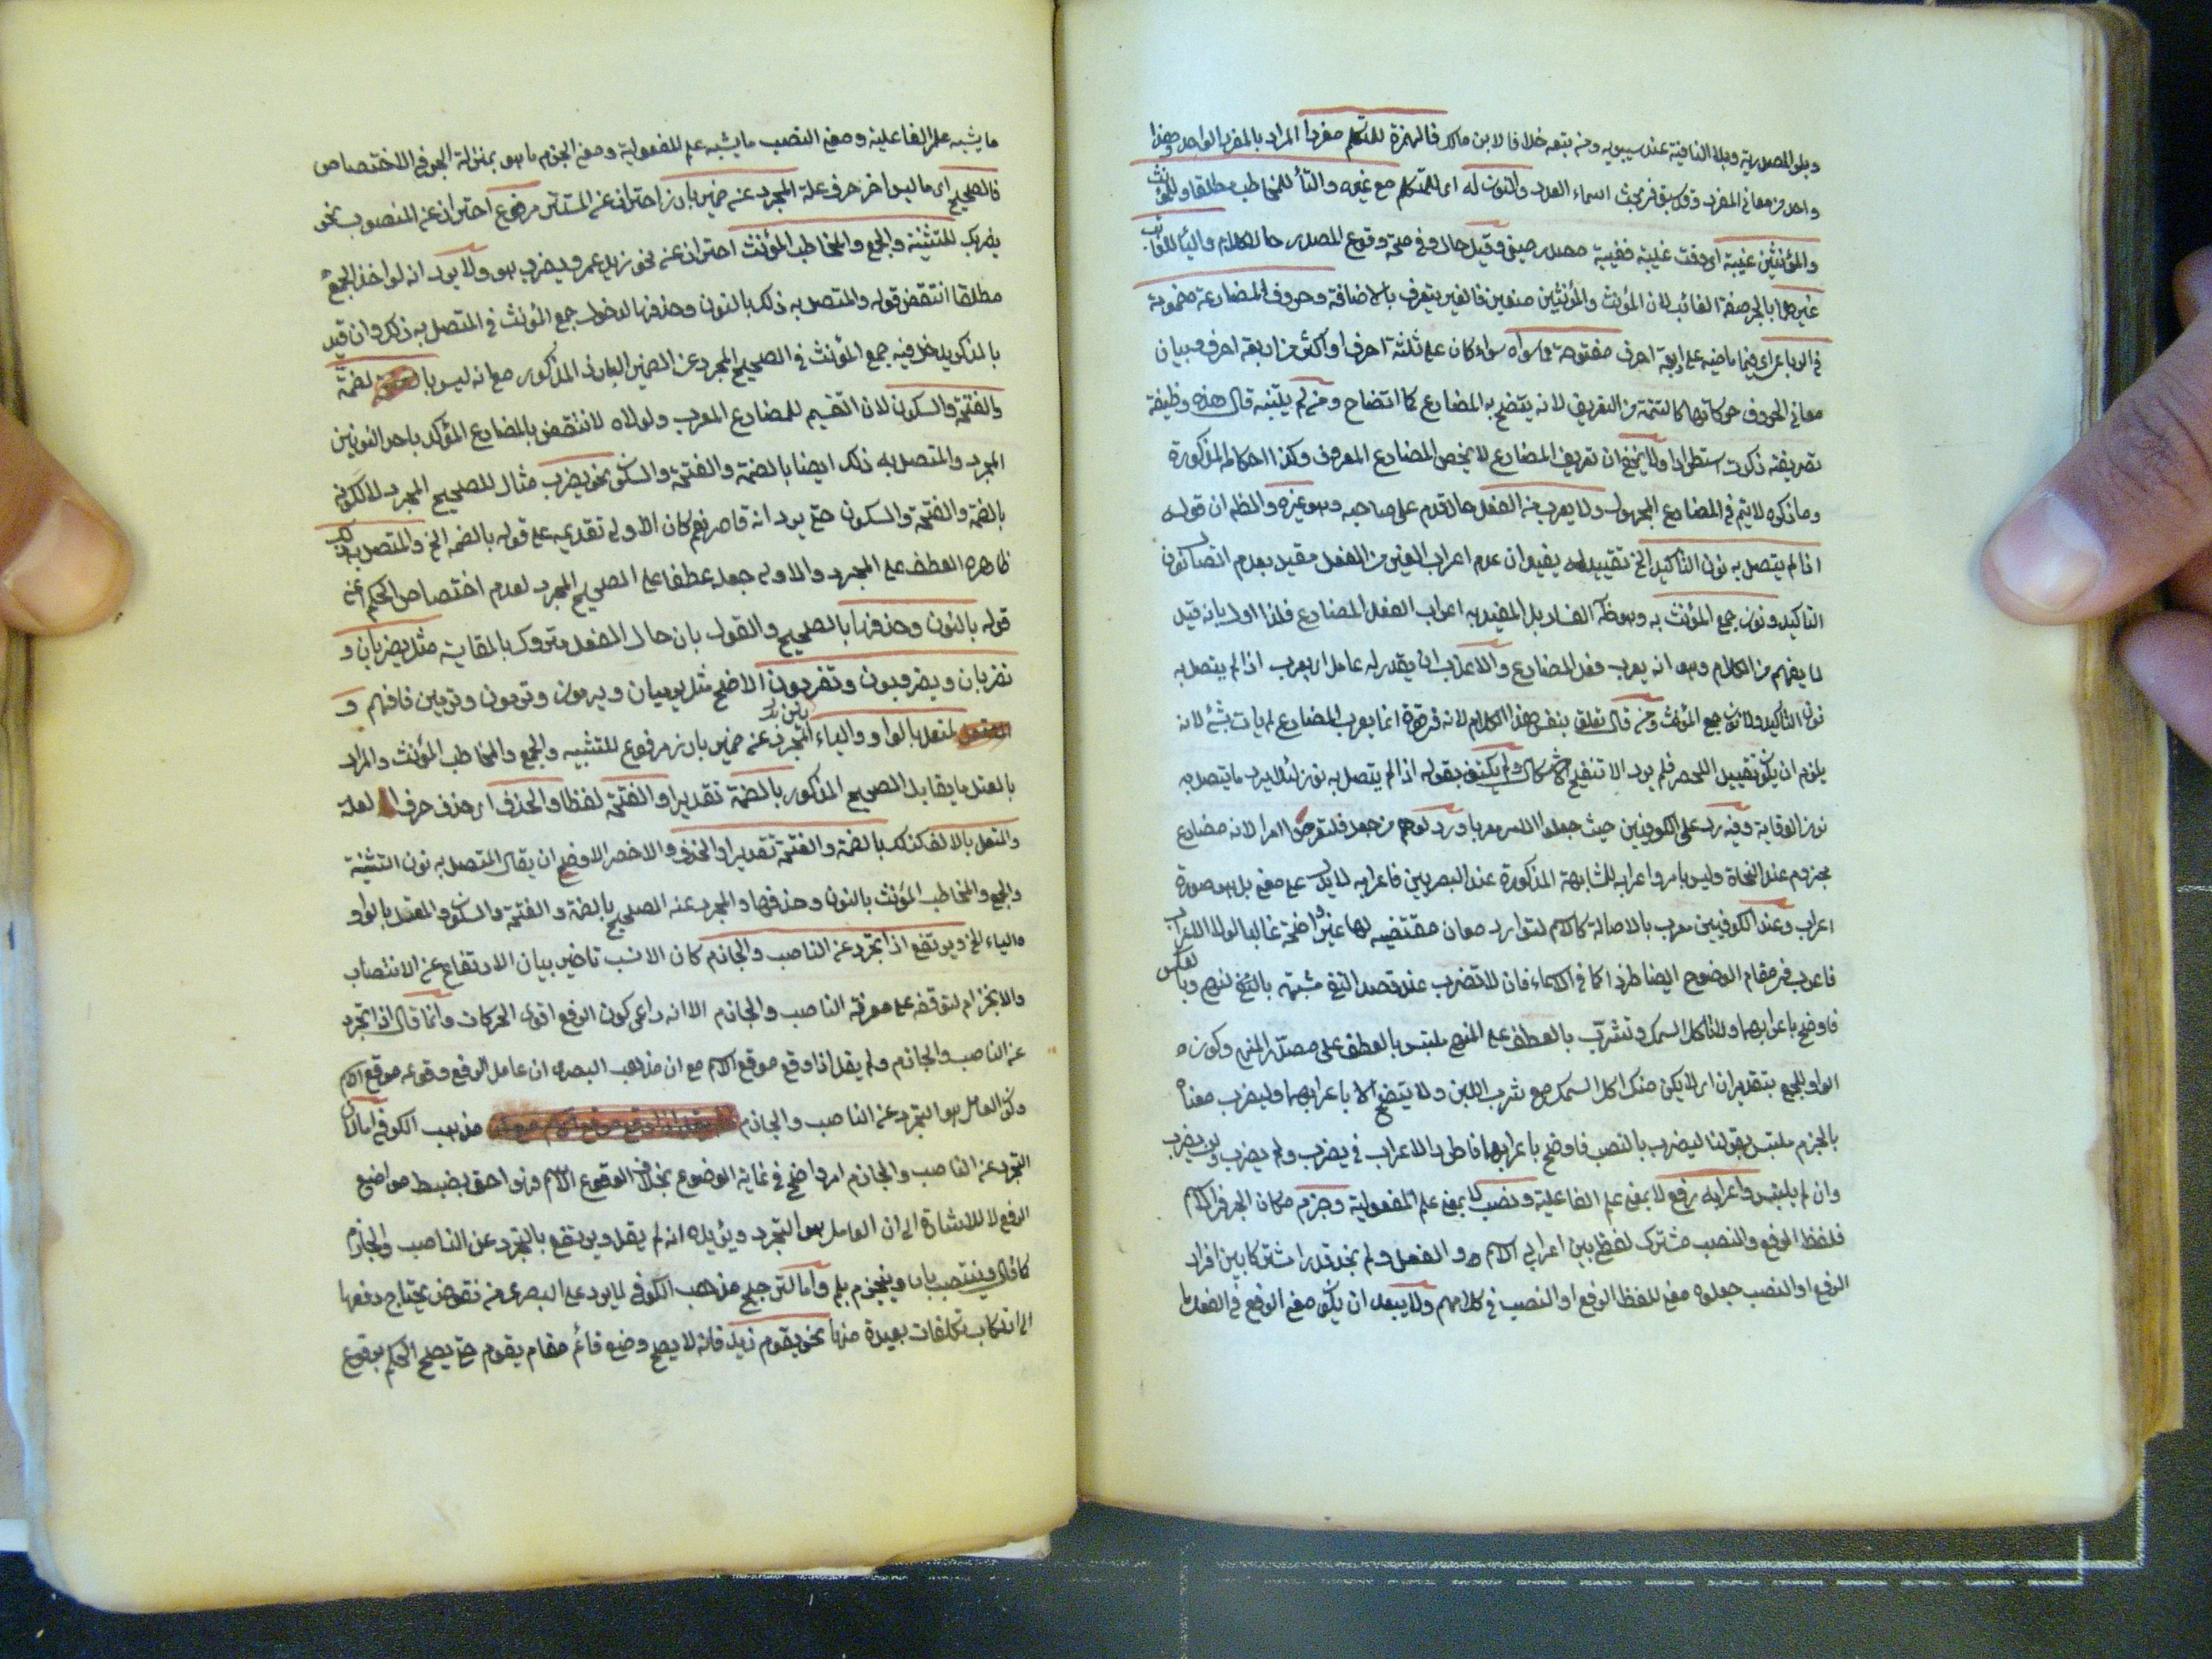 وبلو المصدرية وبلا النافية عند سيبويه ومن تبعه خلافا لابن مالك فالهمزة للمتكلم مفردا المراد بالمفرد الواحد وهذا
واحد من معاني المفرد وقد سبق في بحث اسماء العدد والنون له اى للمتكلم مع غيره والتاء للمخاطب مطلقا وللمؤنث
والمؤنثين غيبة اى وقت غيبة فغيبة مصدر حيني وقيل حال وفي صحة وقوع المصدر حالا كلام والياء للغائب
غيرهما بالجر صفة الغائب لان المؤنث والمؤنثين صنفين فالغير يتعرف بالاضافة وحروف المضارعة مضمومة
في الرباعي اى فيما ماضيه على اربعة احرف مفتوحة فيما سواه سواء كان على ثلثة احرف او اكثر من اربعة احرف فبيان
معاني الحروف حركاتها كالتتمة من التعريف لانه يتضح به المضارع كما اتضاح ومن لم يتنبه قال هذه وظيفة
تصريفية ذكرت استطرادا ولا يخفى ان تعريف المضارع لا يخص المضارع المعروف وكذا احكامه المذكورة
وما ذكره لا يتم في المضارع المجهول ولا يعرب من الفعل حال قدم على صاحبه وهو غيره والظ ان قوله
اذا لم يتصل به نون التاكيد الخ تقييد له يفيد ان عدم اعراب الغير من الفعل مقيد بعدم اتصال نون
التاكيد ونون جمع المؤنث به وهو ظ الفساد بل المفيد به اعراب الفعل المضارع فلذا اول بانه قيد
لما يفهم من الكلام وهو انه يعرب فعل المضارع والاعراب ان يقدر له عامل اى يعرب اذا لم يتصل به
نون التاكيد ولا نون جمع المؤنث ومن قال تعلق بنفس هذا الكلام لانه في قوة انما يعرب المضارع لم يات بشئ لانه
يلزم ان يكون تقييد الحصر فلم يرد الا تنفيذ الاشكال ولم يكتف بقوله اذا لم يتصل به نون لئلا يرد ما يتصل به
نون الوقاية وفيه رد على الكوفيين حيث جعلوا الامر معربا ورد لوهم من جعل فلتفرحوا امرا لانه مضارع
مجزوم عند النحاة وليس بامر واعرابه للمشابهة المذكورة عند البصريين فاعرابه لا يدل على معنى بل هو صورة
اعراب وعند الكوفيين معرب بالاصالة كالاسم لتوارد معان مقتضية لها غير واضحة غالبا لولا الاعراب
فاعرب في مقام الوضوح ايضا طردا كما في الاسماء فان لا تضرب عند قصد النفي مشتبه بالنهي وبالعكس
فاوضح باعرابهما ولا تاكل السمك وتشرب بالعطف على المنهي ملتبس بالعطف على مصدر المنهي وكون
الواو للجمع بتقدير ان اى لا يكن منك اكل السمك مع شرب اللبن ولا يتضح الا باعرابهما وليضرب معناه
بالجزم ملتبس بقولنا ليضرب بالنصب فاوضح باعرابهما فاطرد الاعراب في يضرب ولم يضرب ولن يضرب
وان لم يلتبس واعرابه رفع لا بمعنى علم الفاعلية ونصب لا بمعنى علم المفعولية وجزم مكان الجر في الاسم
فلفظ الرفع والنصب مشترك لفظي بين اعراب الاسم والفعل ولم نجد قدرا مشتركا بين افراد
الرفع او النصب جعلوه معنى للفظ الرفع او النصب في كلامهم ولا يبعد ان يكون معنى الرفع في الفعل ما
ما يشبه علم الفاعلية ومعنى النصب ما يشبه علم المفعولية ومعنى الجزم ما هو بمنزلة الجر في الاختصاص
فالصحيح اى ما ليس اخره حرف علة المجرد عن ضمير بارز احتراز عن المستتر مرفوع احتراز عن المنصوب نحو
يضربك للتثنية والجمع والمخاطب المؤنث احتراز عن نحو زيد عمرو يضرب هو ولا يرد انه لو اخذ الجمع
مطلقا انتقض قوله والمتصل به ذلك بالنون وحذفها لدخول جمع المؤنث في المتصل به ذلك وان قيد
بالمذكر يدخل فيه جمع المؤنث في الصحيح المجرد عن الضمير البارز المذكور مع انه ليس بالضمة
والفتحة والسكون لان التقسيم للمضارع المعرب ولولاه لانتقض بالمضارع المؤكد باحد النونين
المجرد والمتصل به ذلك ايضا بالضمة والفتحة والسكون نحو يضرب مثال للصحيح المجرد لا لكونه
بالضمة والفتحة والسكون حتى يرد انه قاصر نعم كان الاولى تقديمه على قوله بالضمة الخ والمتصل به ذلك
ظاهره العطف على المجرد والاولى جعله عطفا على الصحيح المجرد لعدم اختصاص الحكم اعني
قوله بالنون وحذفها بالصحيح والقول بان حال الفعل متروك بالمقايسة مثل يضربان و
تضربان ويضربون وتضربون الاوضح مثل يرميان ويرمون وترمون وترمين فافهم و
المعتل بالواو والياء المجرد عن ضمير بارز مرفوع للتثنية والجمع والمخاطب المؤنث والمراد
بالمعتل ما يقابل الصحيح المذكور بالضمة تقديرا والفتحة لفظا والحذف اى حذف حرف العلة
والمعتل بالالف كذلك بالضمة والفتحة تقديرا والحذف والاخصر الاوضح ان يقال المتصل به نون التثنية
والجمع والمخاطب المؤنث بالنون وحذفها والمجرد عنه الصحيح بالضمة والفتحة والسكون والمعتل بالواو
والياء الخ ويرتفع اذا تجرد عن الناصب والجازم كان الانسب تاخير بيان الارتفاع عن الانتصاب
والانجزام لتوقفه على معرفة الناصب والجازم الا انه راعى كون الرفع اقوى الحركات وانما قال اذا تجرد
عن الناصب والجازم ولم يقل اذا وقع موقع الاسم مع ان مذهب البصرى ان عامل الرفع وقوعه موقع الاسم
وكون العامل هو التجرد عن الناصب والجازم مذهب الكوفي اما لان
التجرد عن الناصب والجازم امر واضح في غاية الوضوح بخلاف الوقوع الاسم فهو احق بضبط مواضع
الرفع لا للاشارة الى ان العامل هو التجرد ويؤيده انه لم يقل ويرتفع بالتجرد عن الناصب والجازم
كما قال وينتصب بان وينجزم بلم واما لترجيح مذهب الكوفي لما يرد على البصرى من نقوض يحتاج دفعها
الى ارتكاب تكلفات بعيدة منها نحو يقوم زيد فانه لا يصح وضع قائم مقام يقوم حتى يصح الحكم بوقوع